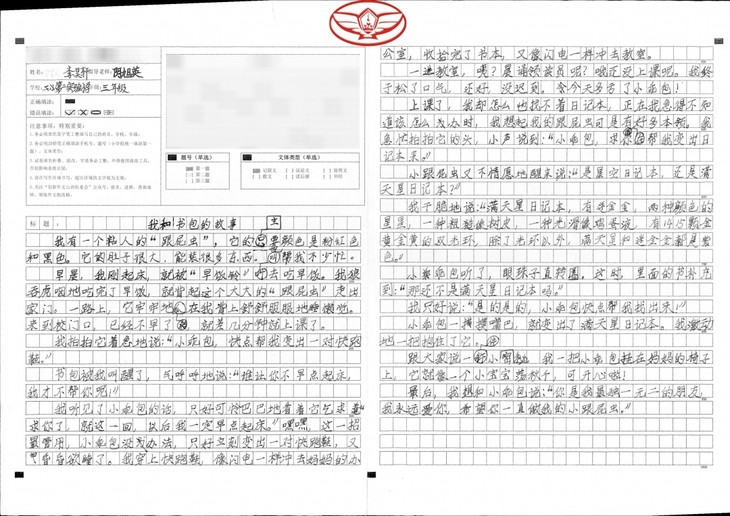 姓名:
指导老师:
学校:
三年级
正确填涂:
错误填涂:
注意事项,特别重要:
题号(单选)
文体类型(单选)
第一题
第二题
第三题
记叙文
议论文
说明文
散文
诗歌
书信
标题:
我和书包的故事
我有一个粘人的“跟屁虫”,它的主要颜色是粉红色
和黑色。它的肚子很大,能装很多东西。帮我不少忙。
早晨,我刚起床,就被“早饭铃”去吃早饭。我狼
吞虎咽地吃完了早饭,就背起这个大大的“跟屁虫”走出
家门。一路上,它牢牢地在我背上舒舒服服地睡懒觉。
来到校门口,已经不早了,就差几分钟就上课了。
我拍拍它着急地说:“小书包,快点帮我变出一对快跑
鞋。”
书包被我叫醒了,气呼呼地说:“谁让你不早点起床,
我才不帮你呢!”
我听见了小书包的话,只好可怜巴巴地看着它乞求
“求你了,就这一回,以后我一定早点起床。”嘿嘿,这一招
最管用,小书包没办法,只好立刻变出一对快跑鞋,又
昏昏欲睡了。我穿上快跑鞋,像闪电一样冲去妈妈的办
公室,收拾完了书本,又像闪电一样冲去教室。
一进教室,嘿?晨诵领读员呢?哦还没上课呢。我终
于松了口气,还好,没迟到。今今天多亏了小书包!
上课了,我却怎么也找不着日记本,正在我急得不知
道该怎么办时,我想起我的跟屁虫可是有好多本领。我
急忙拍拍它的头,小声说到:“小书包,求你帮我变出日
记本来。”
小跟屁虫又不情愿地醒来说:“是星空日记本,还是满
天星日记本?”
我干脆地说:“满天星日记本,有迷金金,两种颜色的
星星,一种粗糙像树皮,一种光滑像鸡蛋液,有145颗金
黄金黄的双光环,除了光环以外,满天星和迷金金都是紫
色。”
小书包听了,眼珠子直转圈。这时,里面的书补充
到:“那还不是满天星日记本吗。”
我只好说:“是的是的,小书包快点帮我找出来!”
小书包一摸摸嘴巴,就变出了满天星日记本。我激动
地一把抱住了它。
跟大家说一个小窍门,我一把小书包挂在妈妈的椅子
上,它就像一个小宝宝荡秋千,可开心啦!
最后,我想和小书包说:“你是我独一无二的朋友,
我永远爱你,希望你一直做我的小跟屁虫。”